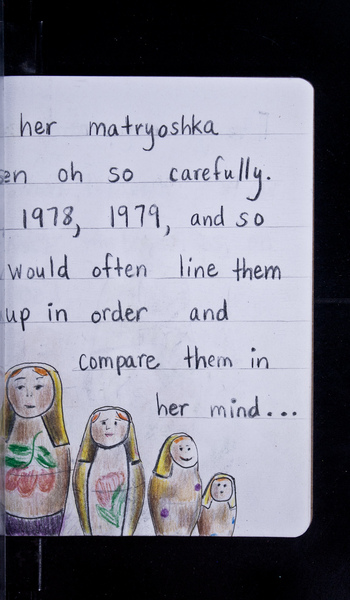 her matryoshka
en oh so carefully.
1978, 1979, and so
would often line them
up in order and
compare them in
her mind...